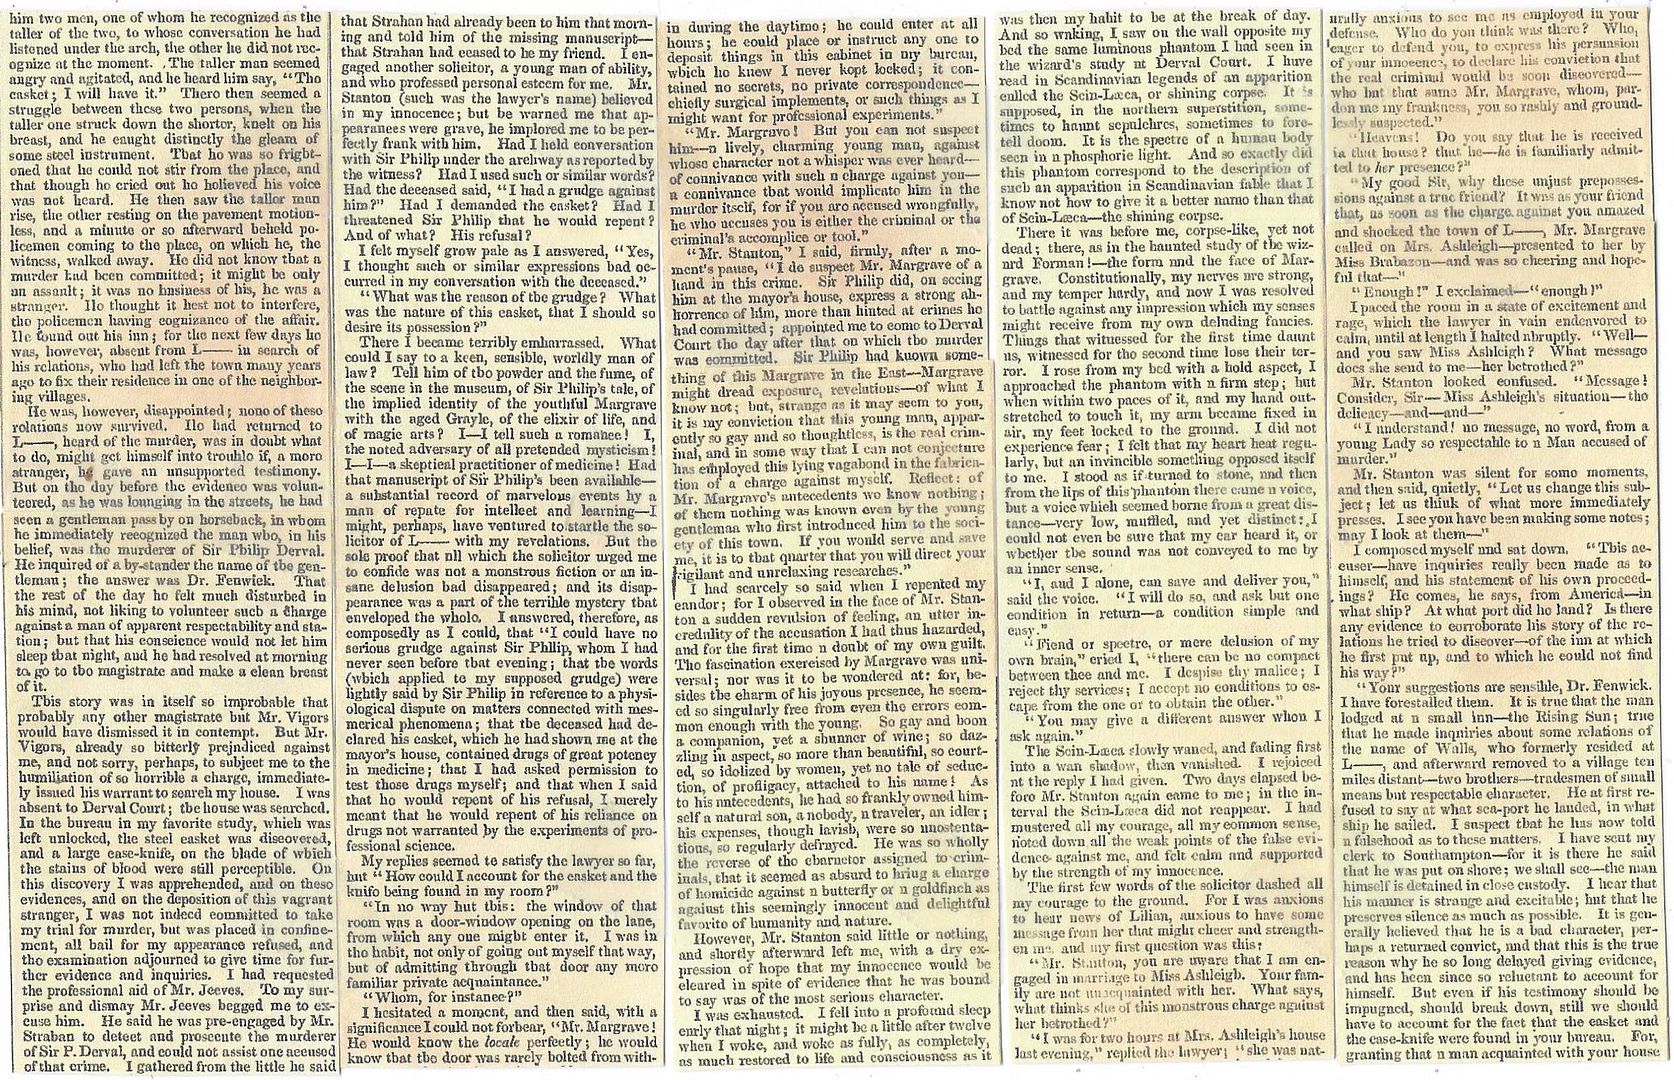 him two men, one of whom he recognized as the
taller of the two, to whose conversation he had
listened under the arch, the other he did not rec-
ognize at the moment. The taller man seemed
angry and agitated, and he heard him say, "The
casket; I will have it." There then seemed a
struggle between these two persons, when the
taller one struck down the shorter, knelt on his
breast, and he caught distinctly the gleam of
some steel instrument. That he was so fright-
ened that he could not stir from the place, and
that though he cried out he believed his voice
was not heard. He then saw the taller man
rise, the other resting on the pavement motion-
less, and a minute or so afterward beheld po-
licemen coming to the place, on which he, the
witness, walked away. He did not know that a
murder had been committed; it might be only
an assault; it was no business of his, he was a
stranger. He thought it best not to interfere,
the policemen having cognizance of the affair.
He found out his inn; for the next few days he
was, however, absent from L—— in search of
his relations, who had left the town many years
ago to fix their residence in one of the neighbor-
ing villages.
He was, however, disappointed; none of these
relations now survived. He had returned to
L——, heard of the murder, was in doubt what
to do, might get himself into trouble if, a mere
stranger, he gave an unsupported testimony.
But on the day before the evidence was volun-
teered, as he was lounging in the streets, he had
seen a gentleman pass by on horseback, in whom
he immediately recognized the man who, in his
belief, was the murderer of Sir Philip Derval.
He inquired of a by-stander the name of the gen-
tleman; the answer was Dr. Fenwick. That
the rest of the day he felt much disturbed in
his mind, not liking to volunteer such a charge
against a man of apparent respectability and sta-
tion; but that his conscience would not let him
sleep that night, and he had resolved at morning
to go to the magistrate and make a clean breast
of it.
This story was in itself so improbable that
probably any other magistrate but Mr. Vigors
would have dismissed it in contempt. But Mr.
Vigors, already so bitterly prejudiced against
me, and not sorry, perhaps, to subject me to the
humiliation of so horrible a charge, immediate-
ly issued his warrant to search my house. I was
absent to Derval Court; the house was searched.
In the bureau in my favorite study, which was
left unlocked, the steel casket was discovered,
and a large case-knife, on the blade of which
the stains of blood were still perceptible. On
this discovery I was apprehended, and on these
evidences, and on the deposition of this vagrant
stranger, I was not indeed committed to take
my trial for murder, but was placed in confine-
ment, all bail for my appearance refused, and
the examination adjourned to give time for fur-
ther evidence and inquiries. I had requested
the professional aid of Mr. Jeeves. To my sur-
prise and dismay Mr. Jeeves begged me to ex-
cuse him. He said he was pre-engaged by Mr.
Strahan to detect and prosecute the murderer
of Sir P. Derval, and could not assist one accused
of that crime. I gathered from the little he said
that Strahan had already been to him that morn-
ing and told him of the missing manuscript—
that Strahan had ceased to be my friend. I en-
gaged another solicitor, a young man of ability,
and who professed personal esteem for me. Mr.
Stanton (such was the lawyer's name) believed
in my innocence; but he warned me that ap-
pearances were grave, he implored me to be per-
fectly frank with him. Had I held conversation
with Sir Philip under the archway as reported by
the witness? Had I used such or similar words?
Had the deceased said, "I had a grudge against
him?" Had I demanded the casket? Had I
threatened Sir Philip that he would repent?
And of what? His refusal?
I felt myself grow pale as I answered, "Yes,
I thought such or similar expressions had oc-
curred in my conversation with the deceased."
"What was the reason of the grudge? What
was the nature of this casket, that I should so
desire its possession?"
There I became terribly embarrassed. What
could I say to a keen, sensible, worldly man of
law? Tell him of the powder and the fume, of
the scene in the museum, of Sir Philip's tale, of
the implied identity of the youthful Margrave
with the aged Grayle, of the elixir of life, and
of magic arts? I—I tell such a romance! I,
the noted adversary of all pretended mysticism!
I—I—a skeptical practitioner of medicine! Had
that manuscript of Sir Philip's been available—
a substantial record of marvelous events by a
man of repute for intellect and learning—I
might, perhaps, have ventured to startle the so-
licitor of L—— with my revelations. But the
sole proof that all which the solicitor urged me
to confide was not a monstrous fiction or an in-
sane delusion had disappeared; and its disap-
pearance was a part of the terrible mystery that
enveloped the whole. I answered, therefore, as
composedly as I could, that "I could have no
serious grudge against Sir Philip, whom I had
never seen before that evening; that the words
(which applied to my supposed grudge) were
lightly said by Sir Philip in reference to a physi-
ological dispute on matters connected with mes-
merical phenomena; that the deceased had de-
clared his casket, which he had shown me at the
mayor's house, contained drugs of great potency
in medicine; that I had asked permission to
test those drugs myself; and that when I said
that he would repent of his refusal, I merely
meant that he would repent of his reliance on
drugs not warranted by the experiments of pro-
fessional science.
My replies seemed to satisfy the lawyer so far,
but "How could I account for the casket and the
knife being found in my room?"
"In no way but this: the window of that
room was a door-window opening on the lane,
from which any one might enter it. I was in
the habit, not only of going out myself that way,
but of admitting through that door any more
familiar private acquaintance."
"Whom, for instance?"
I hesitated a moment, and then said, with a
significance I could not forbear, "Mr. Margrave!
He would know the locale perfectly; he would
know that the door was rarely bolted from with-
in during the daytime; he could enter at all
hours; he could place or instruct any one to
deposit things in this cabinet in my bureau,
which he knew I never kept locked; it con-
tained no secrets, no private correspondence—
chiefly surgical implements, or such things as I
might want for professional experiments."
"Mr. Margrave! But you can not suspect
him—a lively, charming young man, against
whose character not a whisper was ever heard—
of connivance with such a charge against you—
a connivance that would implicate him in the
murder itself, for if you are accused wrongfully,
he who accuses you is either the criminal or the
criminal's accomplice or tool."
"Mr. Stanton," I said, firmly, after a mo-
ment's pause, "I do suspect Mr. Margrave of a
hand in this crime. Sir Philip did, on seeing
him at the mayor's house, express a strong ab-
horrence of him, more than hinted at crimes he
had committed; appointed me to come to Derval
Court the day after that on which the murder
was committed. Sir Philip had known some-
thing of this Margrave in the East—Margrave
might dread exposure, revelations—of what I
know not; but, strange as it may seem to you,
it is my conviction that this young man, appar-
ently so gay and so thoughtless, is the real crim-
inal, and in some way that I can not conjecture
has employed this lying vagabond in the fabrica-
tion of a charge against myself. Reflect: of
Mr. Margrave's antecedents we know nothing;
of them nothing was known even by the young
gentleman who first introduced him to the soci-
ety of this town. If you would serve and save
me, it is to that quarter that you will direct your
vigilant and unrelaxing researches."
I had scarcely so said when I repented my
candor; for I observed in the face of Mr. Stan-
ton a sudden revulsion of feeling, an utter in-
credulity of the accusation I had thus hazarded,
and for the first time a doubt of my own guilt.
The fascination exercised by Margrave was uni-
versal; nor was it to be wondered at: for, be-
sides the charm of his joyous presence, he seem-
ed so singularly free from even the errors com-
mon enough with the young. So gay and boon
a companion, yet a shunner of wine; so daz-
zling in aspect, so more than beautiful, so court-
ed, so idolized by women, yet no tale of seduc-
tion, of profligacy, attached to his name! As
to his antecedents, he had so frankly owned him-
self a natural son, a nobody, a traveler, an idler;
his expenses, though lavish, were so unostenta-
tious, so regularly defrayed. He was so wholly
the reverse of the character assigned to crim-
inals, that it seemed as absurd to bring a charge
of homicide against a butterfly or a goldfinch as
against this seemingly innocent and delightful
favorite of humanity and nature.
However, Mr. Stanton said little or nothing,
and shortly afterward left me, with a dry ex-
pression of hope that my innocence would be
cleared in spite of evidence that he was bound
to say was of the most serious character.
I was exhausted. I fell into a profound sleep
early that night; it might be a little after twelve
when I woke, and woke as fully, as completely,
as much restored to life and consciousness as it
was then my habit to be at the break of day.
And so waking, I saw on the wall opposite my
bed the same luminous phantom I had seen in
the wizard's study at Derval Court. I have
read in Scandinavian legends of an apparition
called the Scin-Læca, or shining corpse. It is
supposed, in the northern superstition, some-
times to haunt sepulchres, sometimes to fore-
tell doom. It is the spectre of a human body
seen in a phosphoric light. And so exactly did
this phantom correspond to the description of
such an apparition in Scandinavian fable that I
know not how to give it a better name than that
of Scin-Læca—the shining corpse.
There it was before me, corpse-like, yet not
dead; there, as in the haunted study of the wiz-
ard Forman!—the form and the face of Mar-
grave. Constitutionally, my nerves are strong,
and my temper hardy, and now I was resolved
to battle against any impression which my senses
might receive from my own deluding fancies.
Things that witnessed for the first time daunt
us, witnessed for the second time lose their ter-
ror. I rose from my bed with a bold aspect, I
approached the phantom with a firm step; but
when within two paces of it, and my hand out-
stretched to touch it, my arm became fixed in
air, my feet locked to the ground. I did not
experience fear; I felt that my heart beat regu-
larly, but an invincible something opposed itself
to me. I stood as if turned to stone, and then
from the lips of this phantom there came a voice,
but a voice which seemed borne from a great dis-
tance—very low, muffled, and yet distinct: I
could not even be sure that my ear heard it, or
whether the sound was not conveyed to me by
an inner sense.
"I, and I alone, can save and deliver you,"
said the voice. "I will do so, and ask but one
condition in return—a condition simple and
easy."
"Fiend or spectre, or mere delusion of my
own brain," cried I, "there can be no compact
between thee and me. I despise thy malice; I
reject thy services; I accept no conditions to es-
cape from the one or to obtain the other."
"You may give a different answer when I
ask again."
The Scin-Læca slowly waned, and fading first
into a wan shadow, then vanished. I rejoiced
at the reply I had given. Two days elapsed be-
fore Mr. Stanton again came to me; in the in-
terval the Scin-Læca did not reappear. I had
mustered all my courage, all my common sense,
noted down all the weak points of the false evi-
dence against me, and felt calm and supported
by the strength of my innocence.
The first few words of the solicitor dashed all
my courage to the ground. For I was anxious
to hear news of Lilian, anxious to have some
message from her that might cheer and strength-
en me, and my first question was this:
"Mr. Stanton, you are aware that I am en-
gaged in marriage to Miss Ashleigh. Your fam-
ily are not unacquainted with her. What says,
what thinks she of this monstrous charge against
her betrothed?"
"I was for two hours at Mrs. Ashleigh's house
last evening," replied the lawyer; "she was nat-
urally anxious to see me as employed in your
defense. Who do you think was there? Who,
eager to defend you, to express his persuasion
of your innocence, to declare his conviction that
the real criminal would be soon discovered—
who but that same Mr. Margrave, whom, par-
don me my frankness, you so rashly and ground-
lessly suspected."
"Heavens! Do you say that he is received
in that house? that he—he is familiarly admit-
ted to her presence?"
"My good Sir, why these unjust preposses-
sions against a true friend? It was as your friend
that, as soon as the charge against you amazed
and shocked the town of L——, Mr. Margrave
called on Mrs. Ashleigh—presented to her by
Miss Brabazon—and was so cheering and hope-
ful that—"
"Enough!" I exclaimed—"enough!"
I paced the room in a state of excitement and
rage, which the lawyer in vain endeavored to
calm, until at length I halted abruptly. "Well—
and you saw Miss Ashleigh? What message
does she send to me—her betrothed?"
Mr. Stanton looked confused. "Message!
Consider, Sir—Miss Ashleigh's situation—the
delicacy—and—and—"
"I understand! no message, no word, from a
young Lady so respectable to a Man accused of
murder."
Mr. Stanton was silent for some moments,
and then said, quietly, "Let us change this sub-
ject; let us think of what more immediately
presses. I see you have been making some notes;
may I look at them—"
I composed myself and sat down. "This ac-
cuser—have inquiries really been made as to
himself, and his statement of his own proceed-
ings? He comes, he says, from America—in
what ship? At what port did he land? Is there
any evidence to corroborate his story of the re-
lations he tried to discover—of the inn at which
he first put up, and to which he could not find
his way?"
"Your suggestions are sensible, Dr. Fenwick.
I have forestalled them. It is true that the man
lodged at a small inn—the Rising Sun; true
that he made inquiries about some relations of
the name of Walls, who formerly resided at
L——, and afterward removed to a village ten
miles distant—two brothers—tradesmen of small
means but respectable character. He at first re-
fused to say at what sea-port he landed, in what
ship he sailed. I suspect that he has now told
a falsehood as to these matters. I have sent my
clerk to Southampton—for it is there he said
that he was put on shore; we shall see—the man
himself is detained in close custody. I hear that
his manner is strange and excitable; but that he
preserves silence as much as possible. It is gen-
erally believed that he is a bad character, per-
haps a returned convict, and that this is the true
reason why he so long delayed giving evidence,
and has been since so reluctant to account for
himself. But even if his testimony should be
impugned, should break down, still we should
have to account for the fact that the casket and
the case-knife were found in your bureau. For,
granting that a man acquainted with your house